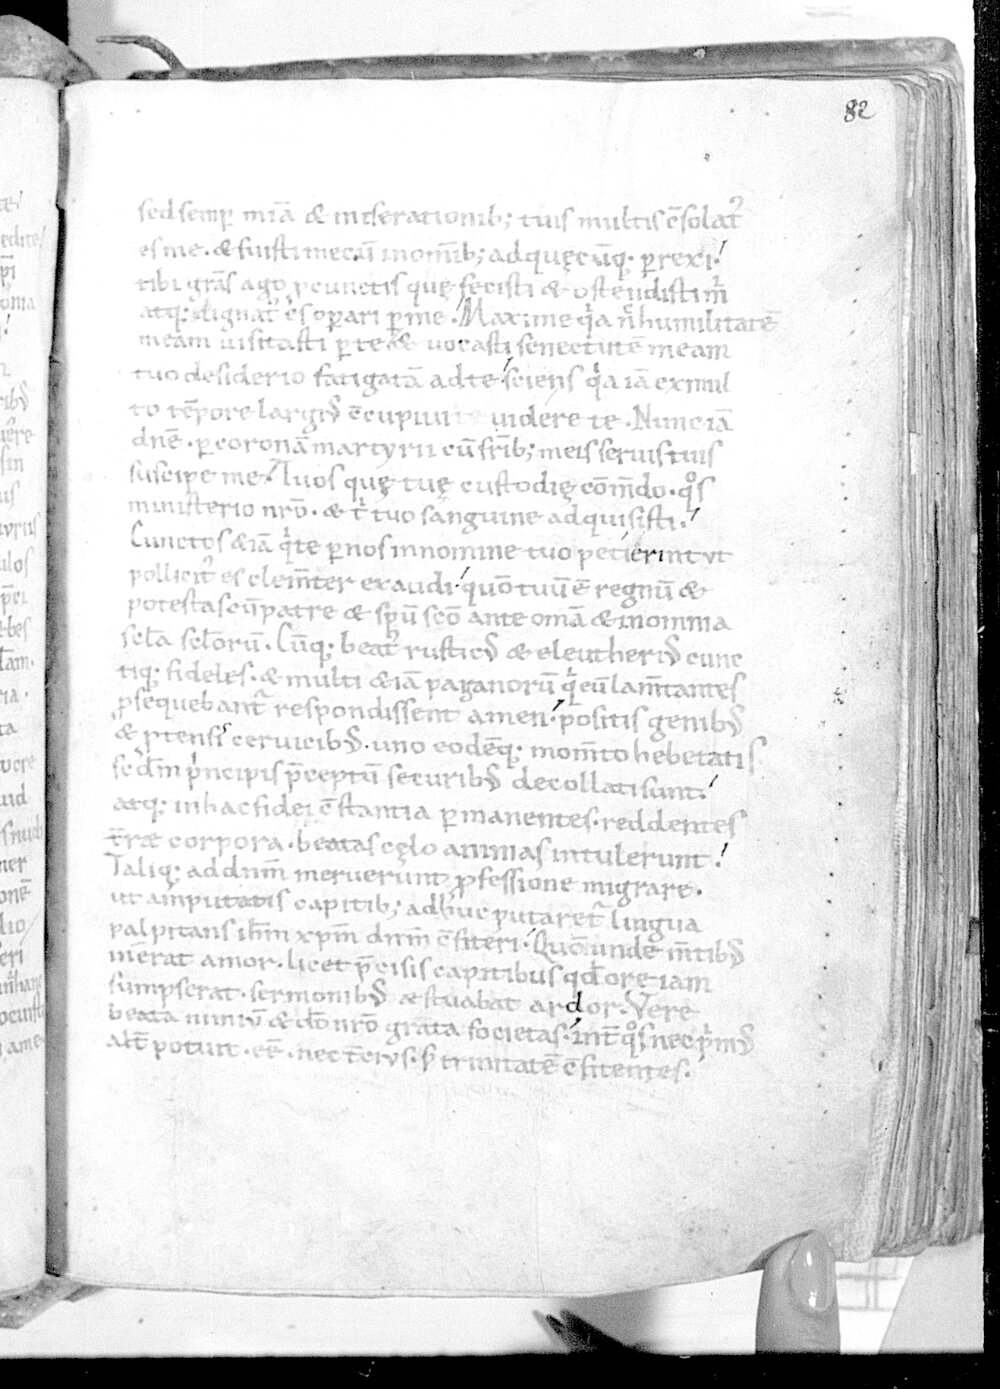 82
sed semꝑ mia᷑ & miserationib; tuis multis c̄solat᷑
es me. & fuisti mecū in om̄ib; ad quęcūq; ꝑrexi.
tibi grās ago ꝓ cunctis quę fecisti & ostendisti m̄
atq; dignat᷒ es oꝑari ꝑ me. Maxime qꝛa n̄ humilitatē
meam uisitasti ꝑ te & uocasti senectutē meam
tuo desiderio fatigatā ad te sciens qa iā ex mul
to tēpore largit᷒ c̄cupiui uidere te. Nunc iā
dn̄e. ꝑ coronam martyrii cū fr̄ib; meis seruis tuis
suscipe me. Tuos quę tuę custodię com̄do. qͦs
ministerio nrō. & t̄ tuo sanguine adquisisti.
Cunctos & iā qͥ te ꝑ nos in nomine tuo petierint ut
pollicit᷒ es clem̄ter exaudi. quō tuū ē regnū &
potestas cū patre & sp̄u scō ante omīa & in omnia
scl̄a scl̄orū. Cūq; beat᷒ rustic᷒ & eleutheri᷒ cunc
tiq; fideles. & multi & iā paganorū qͥ eū lam̄tantes
ꝓsequebant᷑ respondissent amen. positis genib᷒
& ꝓtensis ceruicib᷒. uno eodēq; mom̄to hebetatis
sed̄m pͥncipis p̄ceptū securib᷒ decollati sunt.
atq; in hac fidei c̄stantia ꝑmanentes. reddentes
t̄ræ corpora. beatas cęlo animas intulerunt.
Taliq; ad dn̄m meruerunt ꝓfessione migrare.
ut amputatis capitib; adhuc putaret᷑ lingua
palpitans ih̄m xp̄m dn̄m c̄fiteri. Quō unde m̄tib᷒
inerat amor. licet p̄cisis capitibus qd̄ ore iam
sumpserat. sermonib᷒ æstuabat ardor. Vere
beata nimiū & dō nrō grata societas. int̄ qͦs nec pͥm᷒
alt̄ potuit. eē. nec t̄cius. s; trinitatē c̄fitentes.